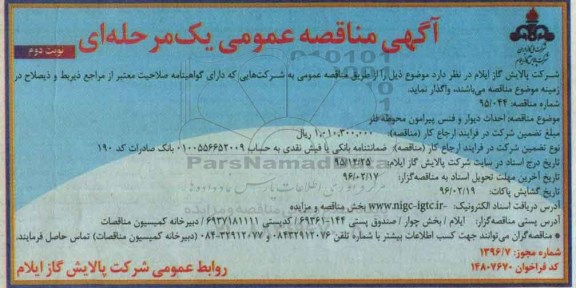 آگهی مناقصه عمومی یک‌مرحله‌ای
نوبت دوم
شرکت پالایش گاز ایلام در نظر دارد موضوع ذیل را از طریق مناقصه عمومی به شرکت‌هایی که دارای گواهینامه صلاحیت معتبر از مراجع ذیربط و ذیصلاح در
زمینه موضوع مناقصه می‌باشند، واگذار نماید.
شماره مناقصه: ۹۵/۰۴۴
موضوع مناقصه: احداث دیوار و فنس پیرامون محوطه فلر
مبلغ تضمین شرکت در فرایند ارجاع کار (مناقصه): ۱،۰۱۰،۳۰۰،۰۰۰ ریال
نوع تضمین شرکت در فرایند ارجاع کار (مناقصه): ضمانتنامه بانکی یا فیش نقدی به حساب ۰۱۰۰۵۵۶۶۵۲۰۰۹ بانک صادرات کد ۱۹۰
تاریخ درج اسناد در سایت شرکت پالایش گاز ایلام: ۹۵/۱۲/۲۵
تاریخ آخرین مهلت تحویل اسناد به مناقصه‌گزار: ۹۶/۰۲/۱۷
تاریخ گشایش پاکات: ۹۶/۰۲/۱۹
آدرس دریافت اسناد الکترونیک: www.nigc-igtc.ir- بخش مناقصه و مزایده
آدرس پستی مناقصه‌گزار: ایلام / بخش چوار / صندوق پستی ۱۴۴-۶۹۳۶۱ / کدپستی ۶۹۳۷۱۸۱۱۱۱ / دبیرخانه کمیسیون مناقصات
* مناقصه‌گران می‌توانند جهت کسب اطلاعات بیشتر با شماره تلفن ۰۸۴۳۲۹۱۲۰۷۶ و ۳۲۹۱۲۰۷۷-۰۸۴ (دبیرخانه کمیسیون مناقصات) تماس حاصل فرمایند.
شماره مجوز: ۱۳۹۶/۷
کد فراخوان ۱۴۸۰۷۶۷۰
روابط عمومی شرکت پالایش گاز ایلام
ParsNamadData